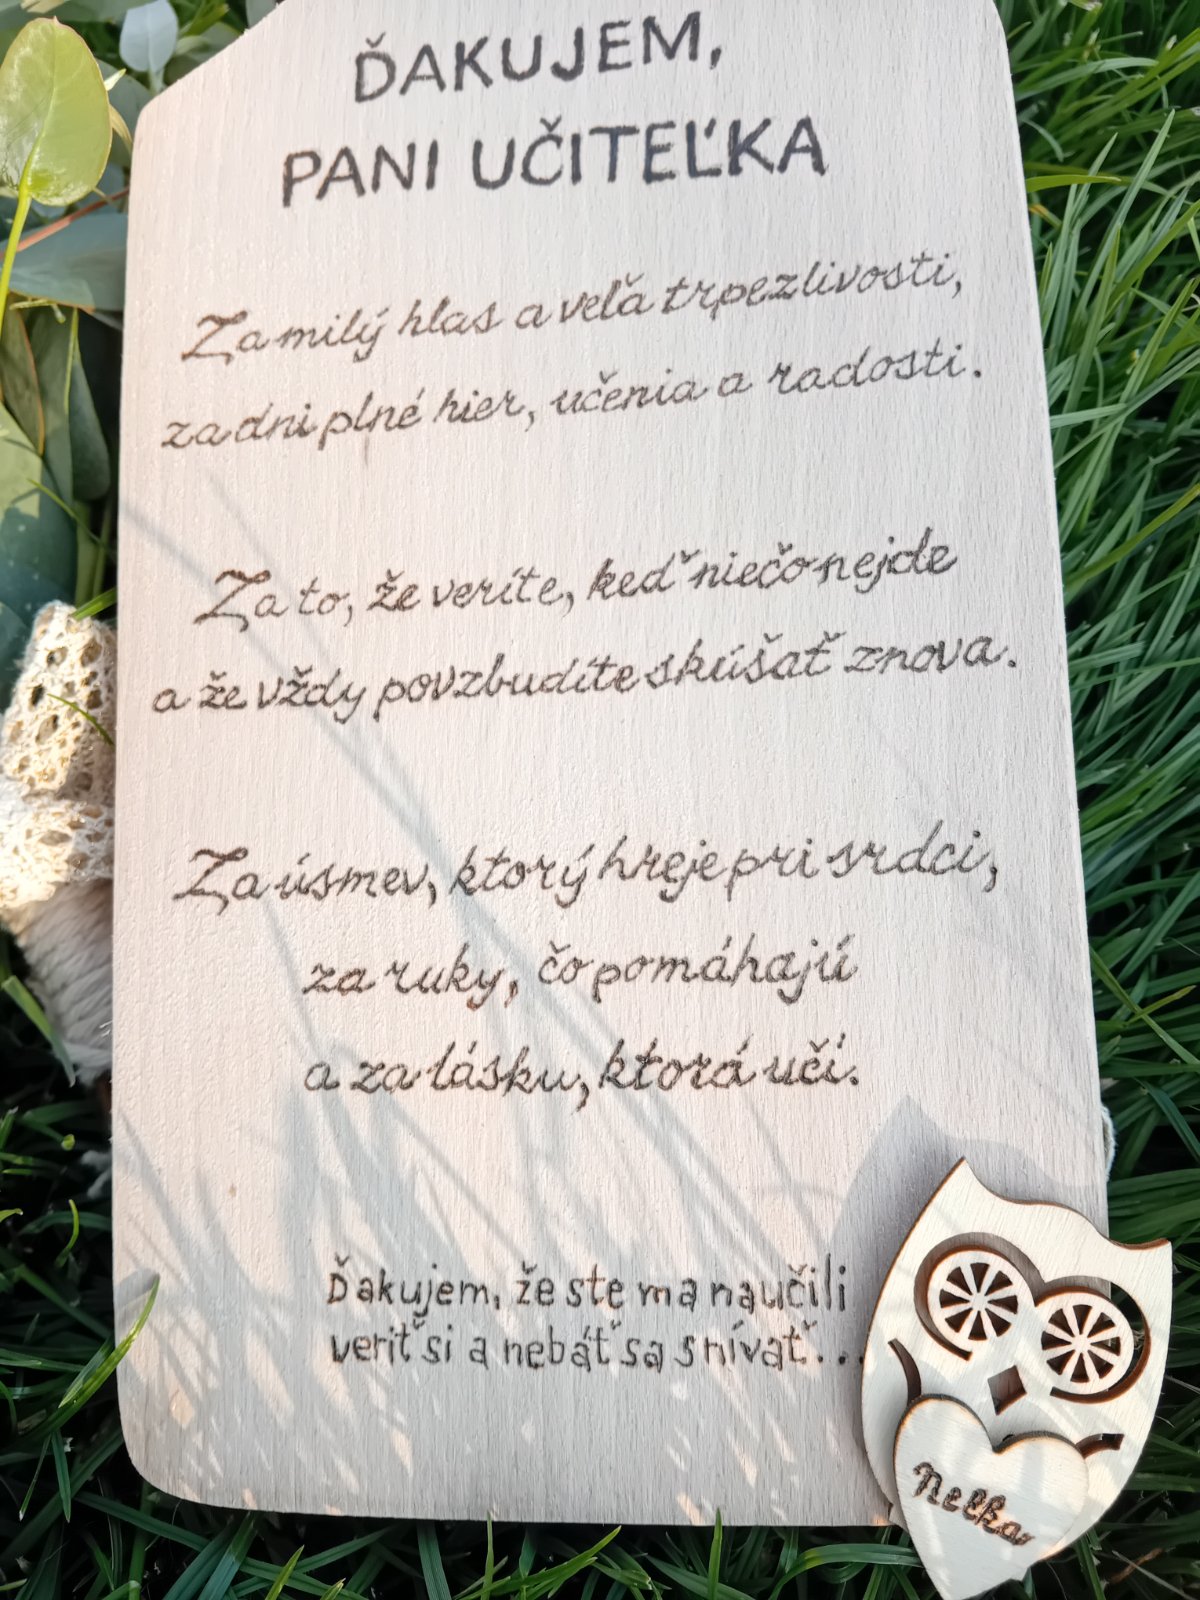 ĎAKUJEM,
PANI UČITEĽKA
Za milý hlas a veľa trpezlivosti,
za dni plné hier, učenia a radosti.
Za to, že veríte, keď niečo nejde
a že vždy povzbudíte skúšať znova.
Za úsmev, ktorý hreje pri srdci,
za ruky, čo pomáhajú
a za lásku, ktorá učí.
Ďakujem, že ste ma naučili
veriť si a nebáť sa snívať...
Nelka